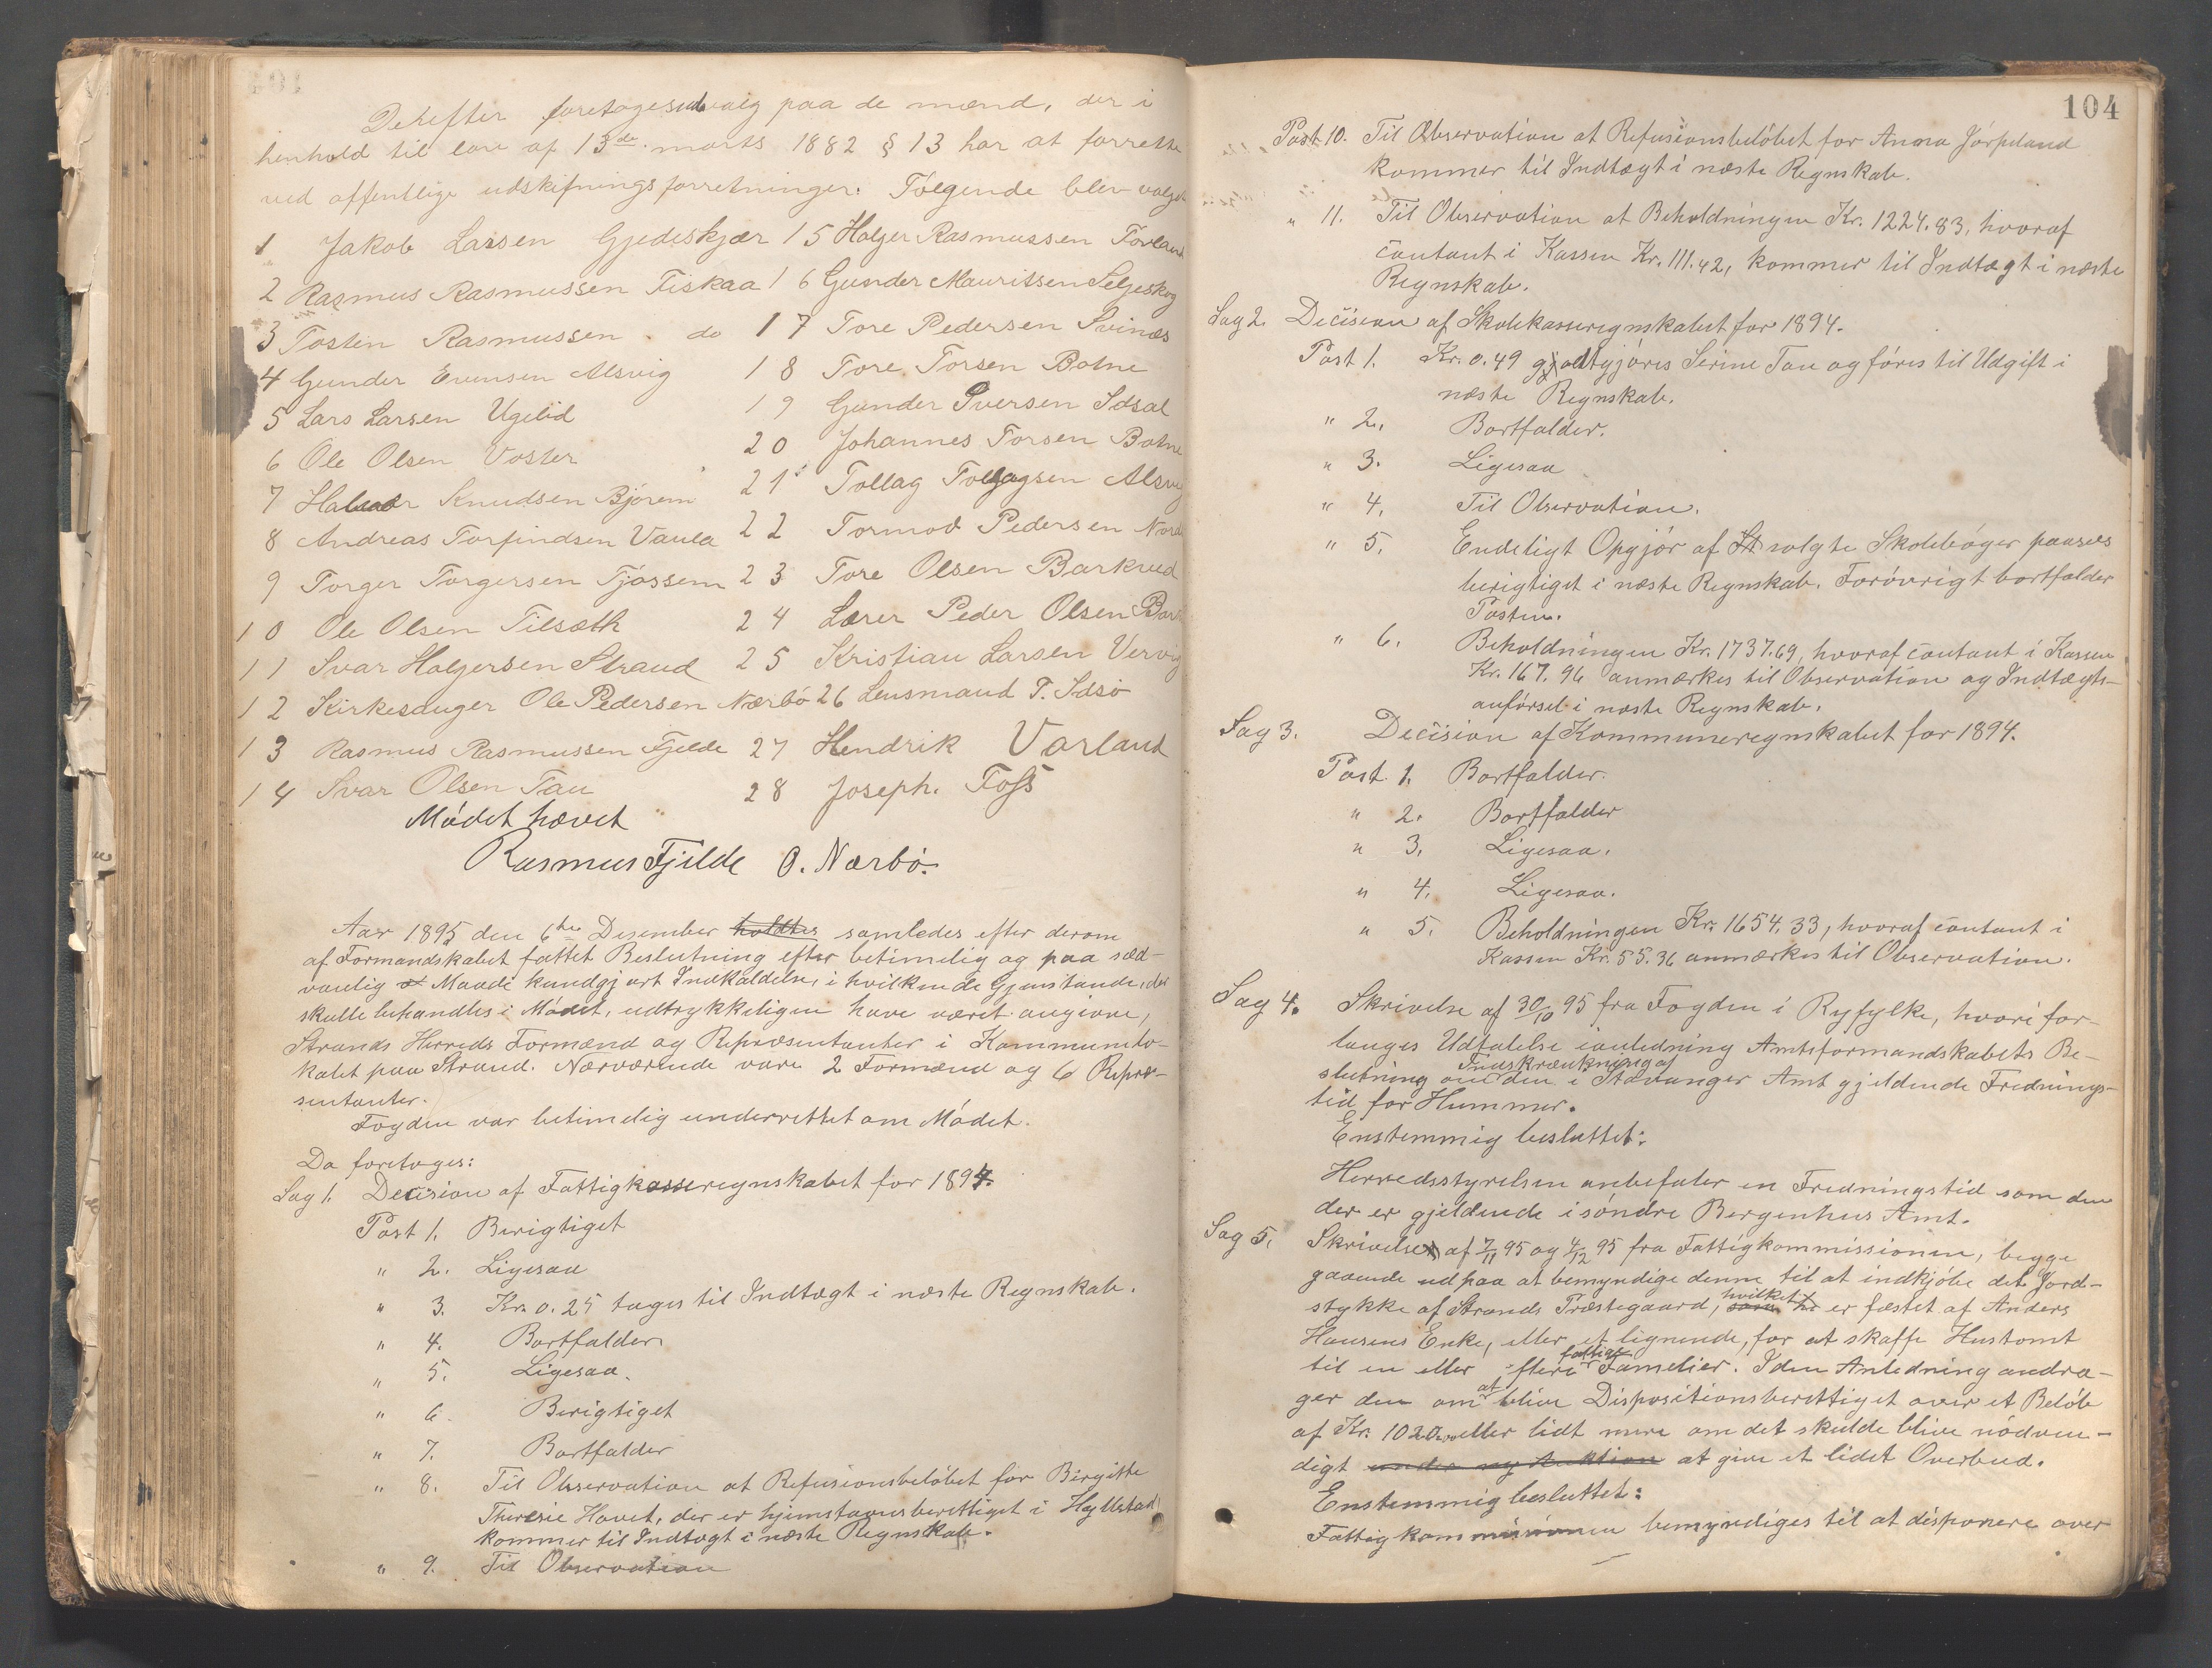 Derefter foretoges udvalg paa de mænd, der i
henhold til lov af 13de marts 1882 § 13 har at forrette
ved offentlige udskifningsforretninger. Følgende blev valgt
1 Jakob Larsen Gjedeskjær
2 Rasmus Rasmussen Fiskaa
3 Tosten Rasmussen do
4 Gunder Evensen Alsvig
5 Lars Larsen Ugelid
6 Ole Olsen Voster
7 Halvor Knudsen Bjørem
8 Andreas Torfindsen Vaula
9 Torger Torgersen Tjøssem
10 Ole Olsen Tilsæth
11 Ivar Holgersen Strand
12 Kirkesanger Ole Pedersen Nærbø
13 Rasmus Rasmussen Fjelde
14 Ivar Olsen Tau
15 Holger Rasmussen Torland
16 Gunder Mauritsen Seljeskog
17 Tore Pedersen Svines
18 Tore Torsen Botne
19 Gunder Iversen Idsal
20 Johannes Torsen Botne
21 Tollag Tollagsen Alsvig
22 Tormod Pedersen
23 Tore Olsen Barkved
24 Lærer Peder Olsen
25 Kristian Larsen Vervig
26 Lensmand T. Idsø
27 Hendrik Vorland
28 Joseph. Foss
Mødet hævet
Rasmus Fjelde O. Nærbø.
Aar 1895 den 6te Desember holdtes samledes efter derom
af Formandskabet fattet Beslutning efter betimelig og paa sæd-
vanlig Maade kundgjort Indkaldelse, i hvilken de Gjenstande, der
skulle behandles i Mødet, udtrykkeligen have været angivne,
Strands Herreds Formænd og Repræsentanter i Kommunelo-
kalet paa Strand. Nærværende vare 2 Formænd og 6 Repræ-
sentanter.
Fogden var betimelig underrettet om Mødet.
Da foretoges:
Sag 1. Decision af Fattigkasseregnskabet for 1894.
Post 1. Berigtiget
" 2. Ligesaa
" 3. Kr. 0.25 tages til Indtægt i næste Regnskab.
" 4. Bortfalder
" 5. Ligesaa.
" 6. Berigtiget
" 7. Bortfalder
" 8. Til Observation at Refusionsbeløbet for Birgitte
Theresie Hovet, der er hjemstavnsberettiget i Hyllestad
kommer til Indtægt i næste Regnskab.
" 9. Til Observation
104
Post 10. Til Observation at Refusionsbeløbet for Anna Jørpeland
kommer til Indtægt i næste Regnskab.
" 11. Til Observation at Beholdningen Kr. 1224.83, hvoraf
contant i Kassen Kr. 111.42, kommer til Indtægt i næste
Regnskab.
Sag 2. Decision af Skolekasseregnskabet for 1894.
Post 1. Kr. 0.49 godtgjøres Serine Tau og føres til Udgift i
næste Regnskab.
" 2. Bortfalder.
" 3. Ligesaa
" 4. Til Observation.
" 5. Endeligt Opgjør af solgte Skolebøger paasees
berigtiget i næste Regnskab. Forøvrigt bortfalder
Posten.
" 6. Beholdningen Kr. 1737.69, hvoraf contant i Kassen
Kr. 167.96 anmærkes til Observation og Indtægts-
anførsel i næste Regnskab.
Sag 3. Decision af Kommuneregnskabet for 1894.
Post 1. Bortfalder.
" 2. Bortfalder
" 3. Ligesaa.
" 4. Ligesaa.
" 5. Beholdningen Kr. 1654.33, hvoraf contant i
Kassen Kr. 55.36 anmærkes til Observation.
Sag 4. Skrivelse af 30/10 95 fra Fogden i Ryfylke, hvori for-
langes Udtalelse i anledning Amtsformandskabets Be-
slutning om Indskrænkning af den i Stavanger Amt gjeldende Frednings-
tid for Hummer.
Enstemmig besluttet:
Herredsstyrelsen anbefaler en Fredningstid som den
der er gjeldende i søndre Bergenhus Amt.
Sag 5. Skrivelse af 7/11 95 og 4/12 95 fra Fattigkommissionen, begge
gaaende ud paa at bemyndige denne til at indkjøbe det Jord-
stykke af Strands Præstegaard, som hvilket er fæstet af Anders
Hansens Enke, eller et lignende, for at skaffe Hustomt
til en eller flere fattige Familier. I den Anledning andra-
ger den om at blive Dispositionsberettiget over et Beløb
af Kr. 1020.00 eller lidt mere om det skulde blive nødven-
digt under ny Auktion at give et lidet Overbud.
Enstemmig besluttet:
Fattigkommissionen bemyndiges til at disponere over